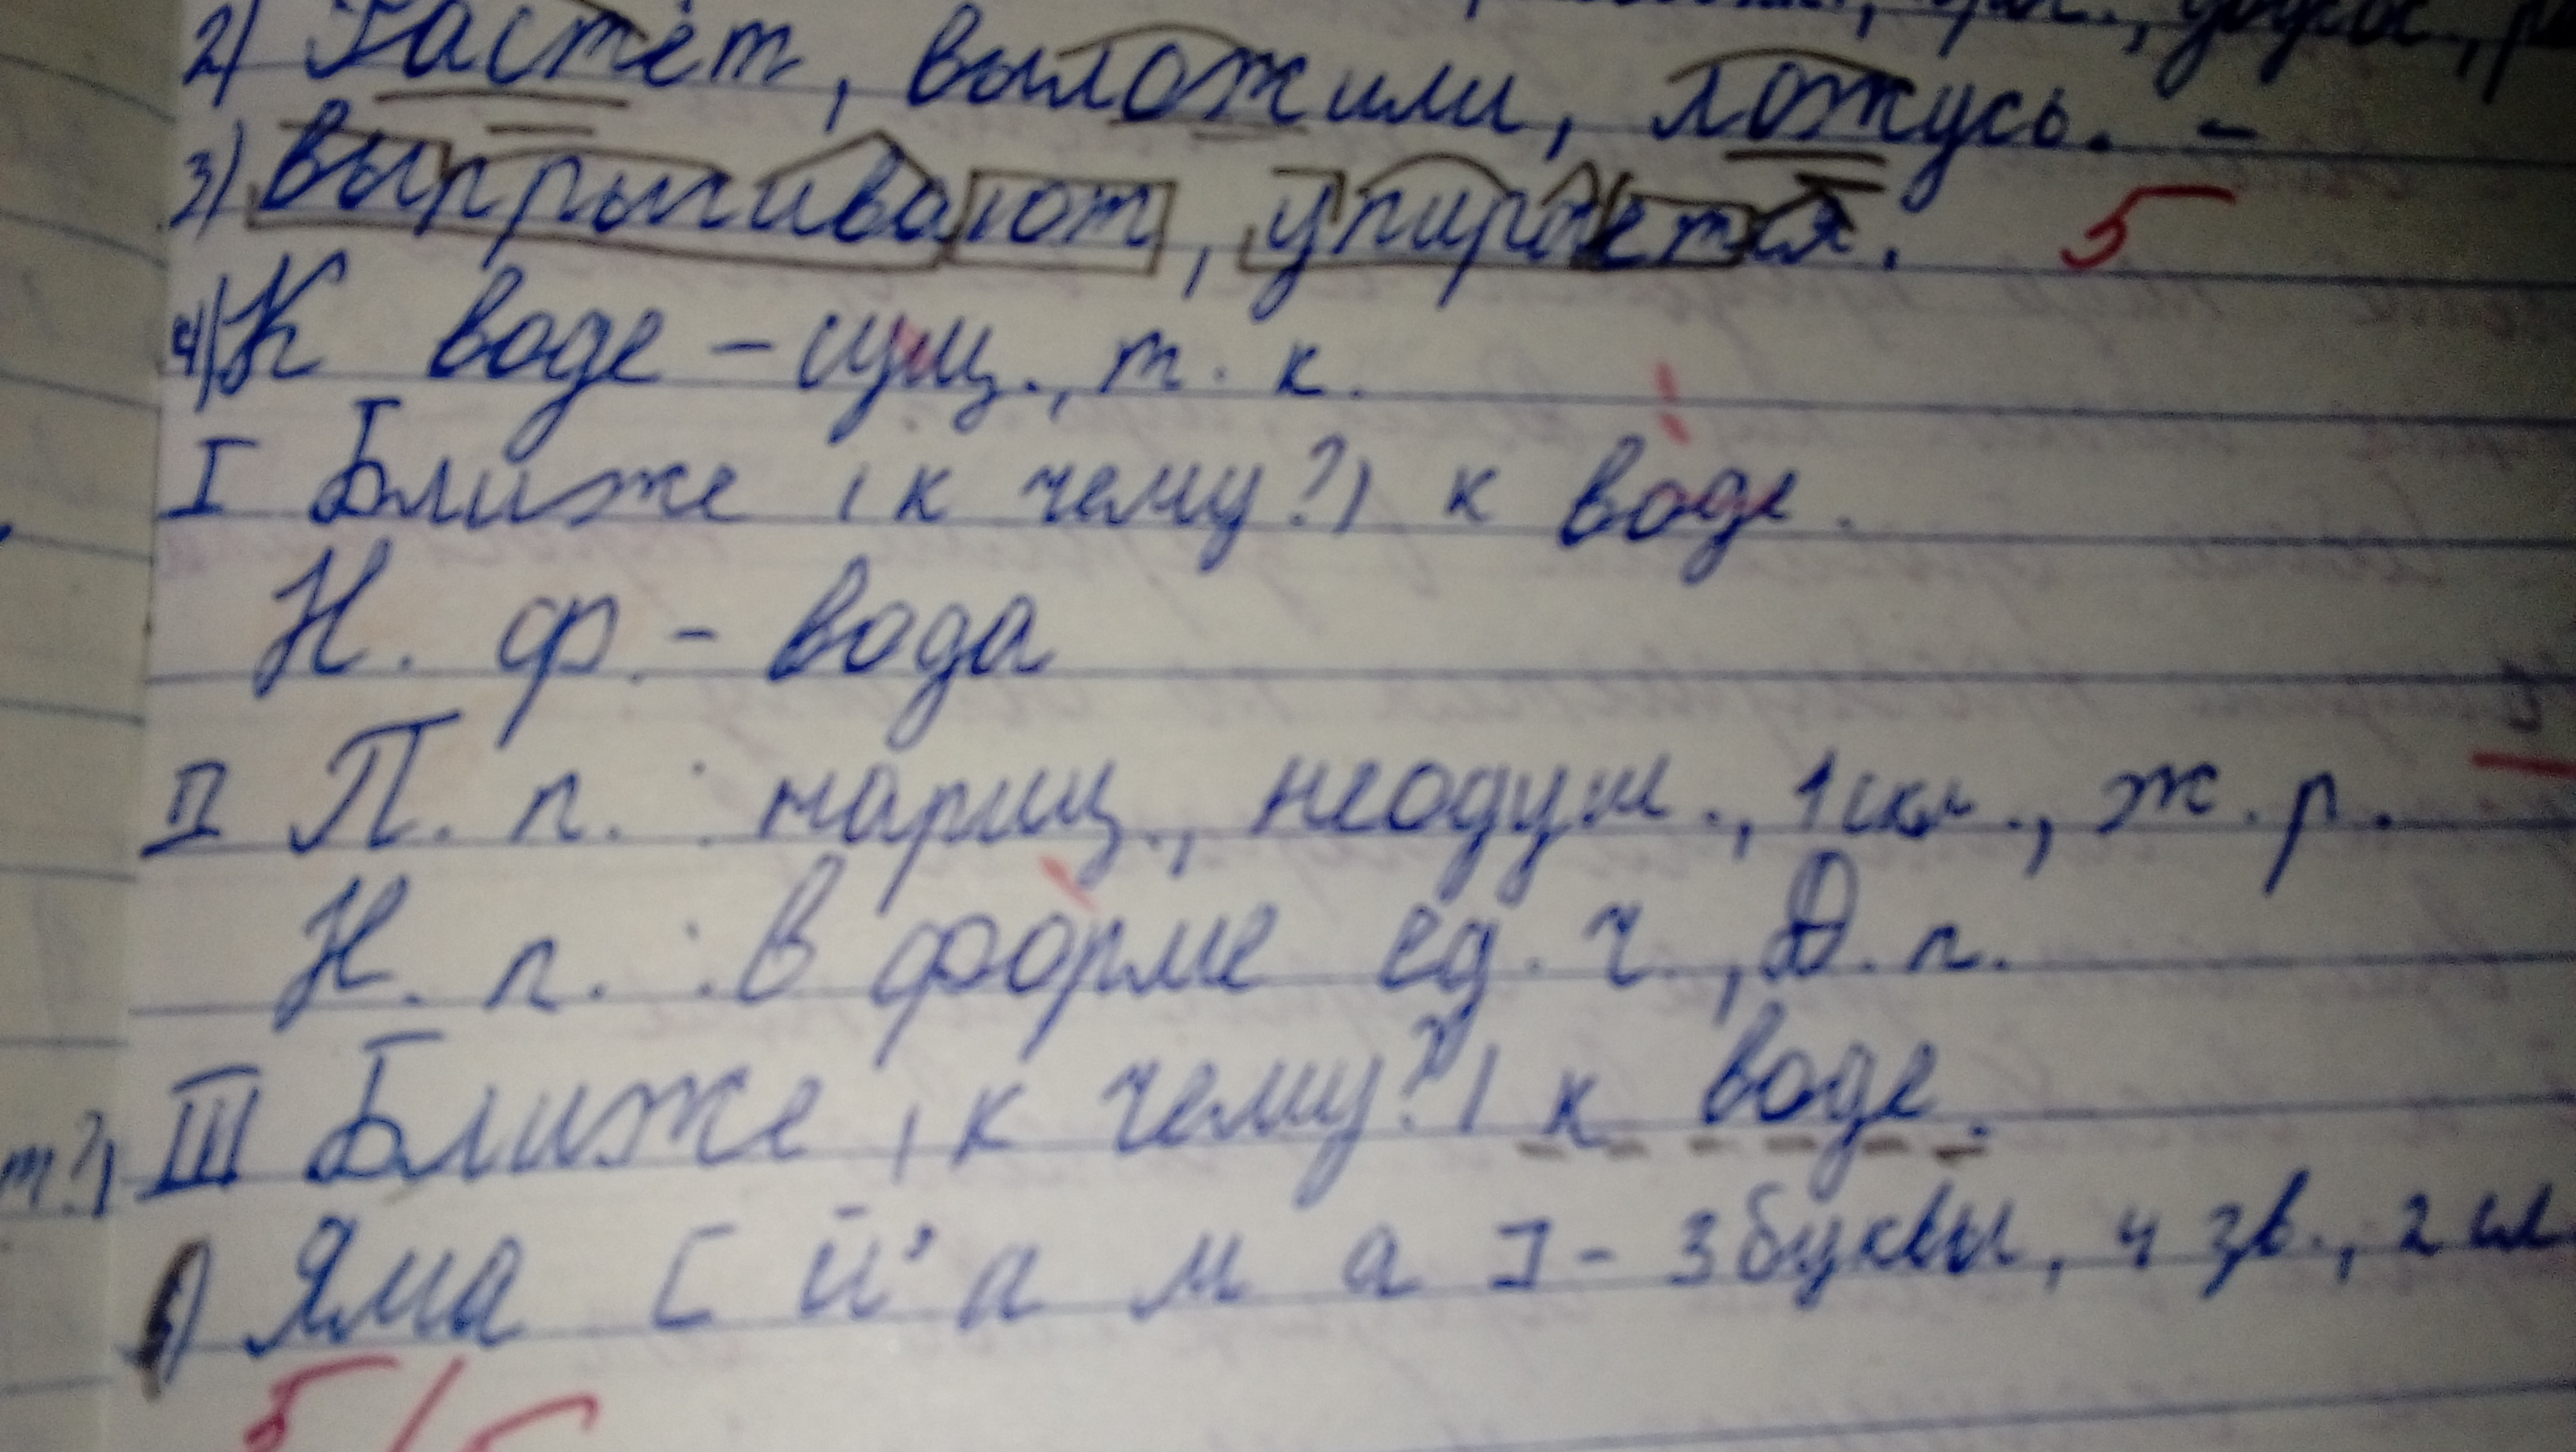 2) Растёт, выложили, ложусь. -
3) Выпрыгивают, упирается. 5
4) К воде - сущ., т. к.
I Ближе (к чему?) к воде.
Н. ф. - вода
II П. п. : нариц., неодуш., 1 скл., ж. р.
Н. п. : в форме ед. ч., Д. п.
т?) III Ближе (к чему?) к воде.
Яма [й' а м а] - 3 буквы, 4 зв., 2 сл
5/5